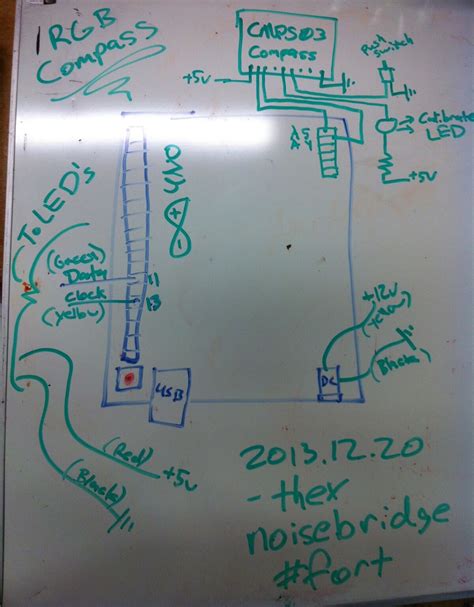 RGB
Compass
CMPS03
Compass
+5v
Push
Switch
Calibrate
LED
+5v
A5
A4
UNO
To LED's
(Green)
Data
11
Clock
13
(Yellow)
+12v
(Yellow)
(Black)
DC
USB
(Red)
+5v
(Black)
2013.12.20
- thex
noisebridge
#fort